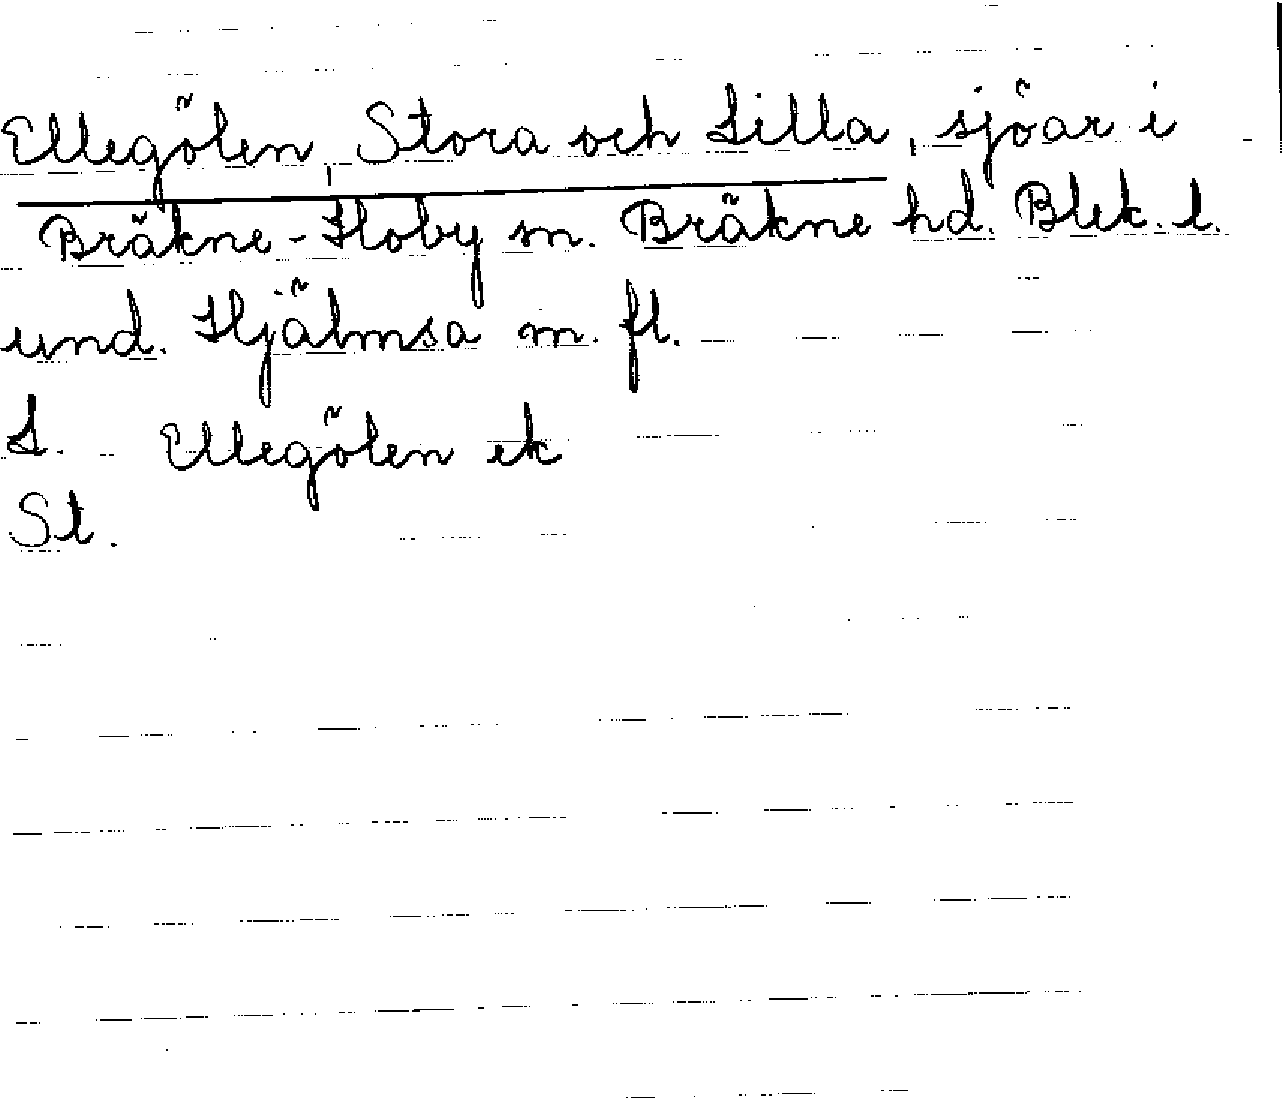 Ellegölen, Stora och Lilla, sjöar i
Bräkne-Hoby sn. Bräkne hd. Blek. l.
und. Hjälmsa m. fl.
L. Ellegölen ek
St.